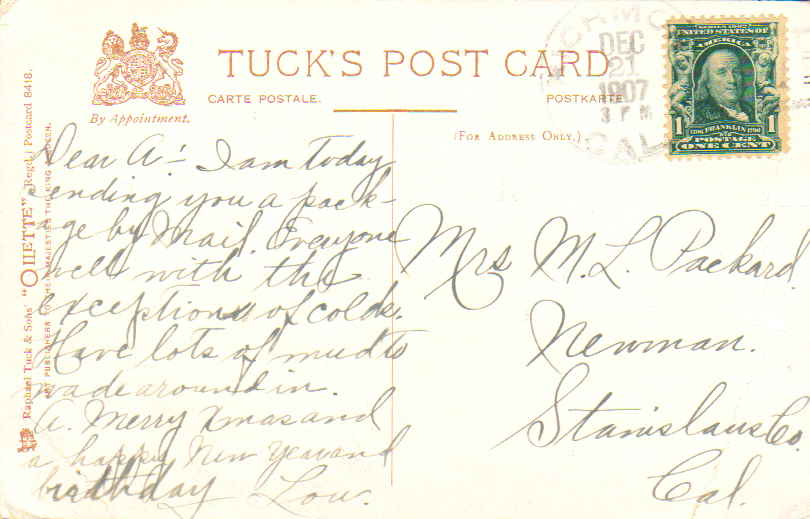 TUCK'S POST CARD
CARTE POSTALE.
POSTKARTE
By Appointment.
(FOR ADDRESS ONLY.)
Raphael Tuck & Sons' "OILETTE" Regd.: Postcard 8418.
ART PUBLISHERS TO THEIR MAJESTIES THE KING & QUEEN.
RICHMO
DEC
21
1907
3 P M
CAL
SERIES 1902
UNITED STATES OF
AMERICA
1706 FRANKLIN 1790
1 1
POSTAGE
ONE CENT
Dear A:- I am today
sending you a pack-
age by Mail. Everyone
well with the
exception of colds.
Have lots of mud to
wade around in.
A. Merry Xmas and
a happy New Year and
birthday Lou.
Mrs M. L. Packard.
Newman.
Stanislaus Co.
Cal.